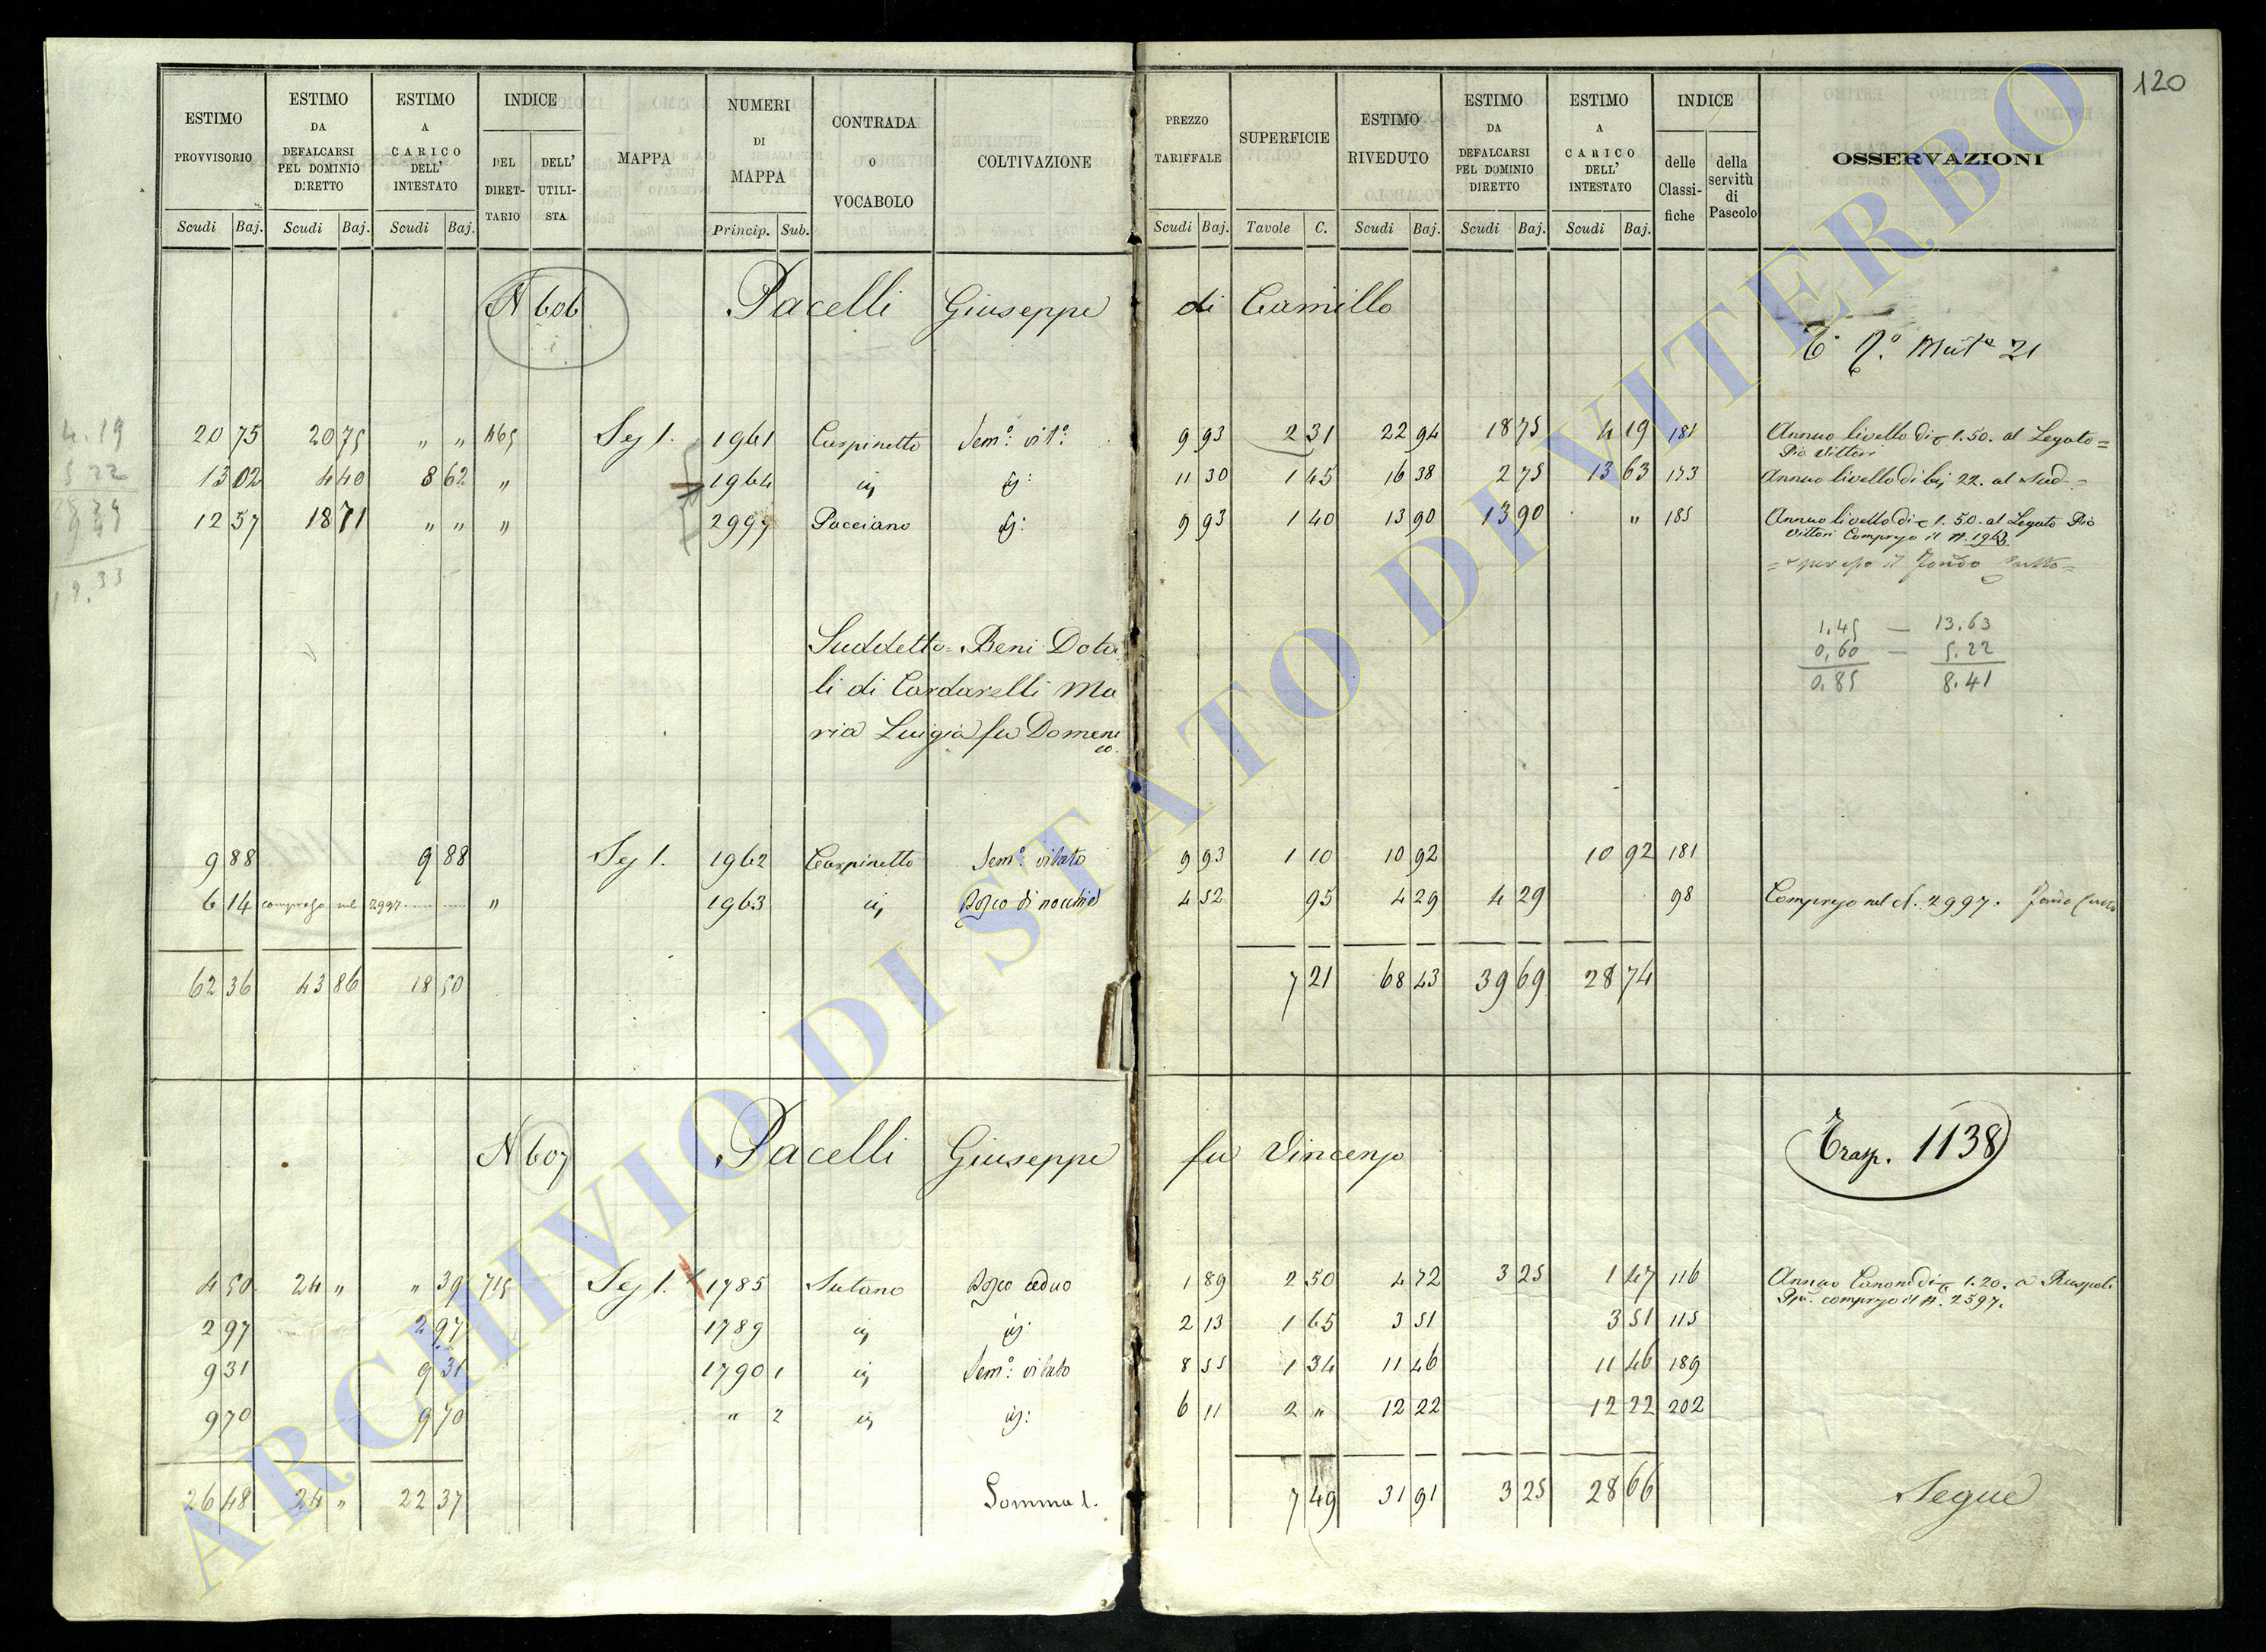 120
ESTIMO PROVVISORIO Scudi Baj.
ESTIMO DA DEFALCARSI PEL DOMINIO DIRETTO Scudi Baj.
ESTIMO A CARICO DELL' INTESTATO Scudi Baj.
INDICE DEL DIRETTARIO DELL' UTILISTA
MAPPA
NUMERI DI MAPPA Princip. Sub.
CONTRADA O VOCABOLO
COLTIVAZIONE
PREZZO TARIFFALE Scudi Baj.
SUPERFICIE Tavole C.
ESTIMO RIVEDUTO Scudi Baj.
ESTIMO DA DEFALCARSI PEL DOMINIO DIRETTO Scudi Baj.
ESTIMO A CARICO DELL' INTESTATO Scudi Baj.
INDICE delle Classifiche della servitù di Pascolo
OSSERVAZIONI
N 606 Pacelli Giuseppe di Camillo
N.° Mut.e 21
20 75 20 75 " " 1165 Sej 1. 1961 Carpinetto Sem.° vit.°: 9 93 2 31 22 94 18 75 4 19 181 Annuo livello di 1.50. al Legato=
Pio Vittori
13 02 4 40 8 62 " 1964 11 30 1 45 16 38 2 75 13 63 173 Annuo livello di 22. al Sud.=
12 57 18 71 " " " 2997 Pacciano 9 93 1 40 13 90 13 90 " 185 Annuo livello di 1.50. al Legato Pio
Vittori Compreso il N. 1963
4.19
5 22
1.45 — 13.63
0,60 — 5.22
0.85 8.41
Suddetto = Beni Dota
li di Cardarelli Ma
ria Luigia fu Domeni
co.
9 88 9 88 Sej 1. 1962 Carpinetto Sem.° vitato 9 93 1 10 10 92 10 92 181
6 14 compreso nel 2997 " 1963 Bosco di nocchie 4 52 95 4 29 4 29 98 Compreso nel N. 2997.
62 36 43 86 18 50 7 21 68 43 39 69 28 74
N 607 Pacelli Giuseppe fu Vincenzo
Trasp. 1138
4 50 24 " " 39 715 Sej 1. 1785 Sutano Bosco ceduo 1 89 2 50 4 72 3 25 1 47 116 Annuo Canone di 1.20. a Ruspoli
compreso il N. 2597.
2 97 2 97 1789 2 13 1 65 3 51 3 51 115
9 31 9 31 1790 1 Sem.° vitato 8 55 1 34 11 46 11 46 189
9 70 9 70 " 2 6 11 2 " 12 22 12 22 202
26 48 24 " 22 37 Somma 1. 7 49 31 91 3 25 28 66 Segue
ARCHIVIO DI STATO DI VITERBO